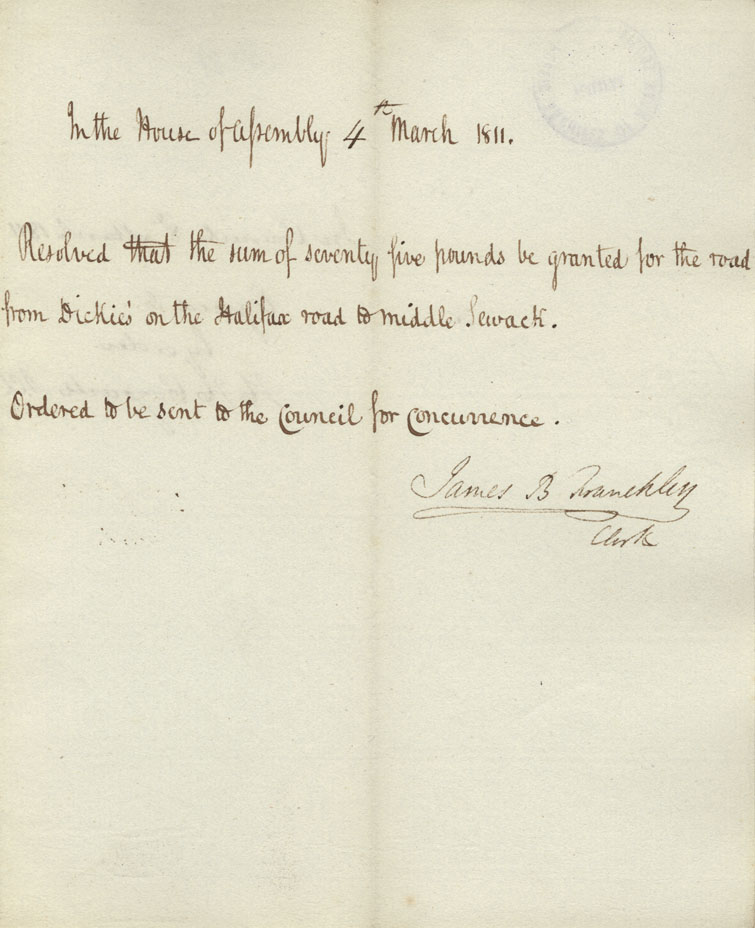 In the House of Assembly 4th March 1811.
Resolved that the sum of seventy five pounds be granted for the road
from Dickie's on the Halifax road to middle Sewack.
Ordered to be sent to the Council for Concurrence.
James B Franckley
Clerk